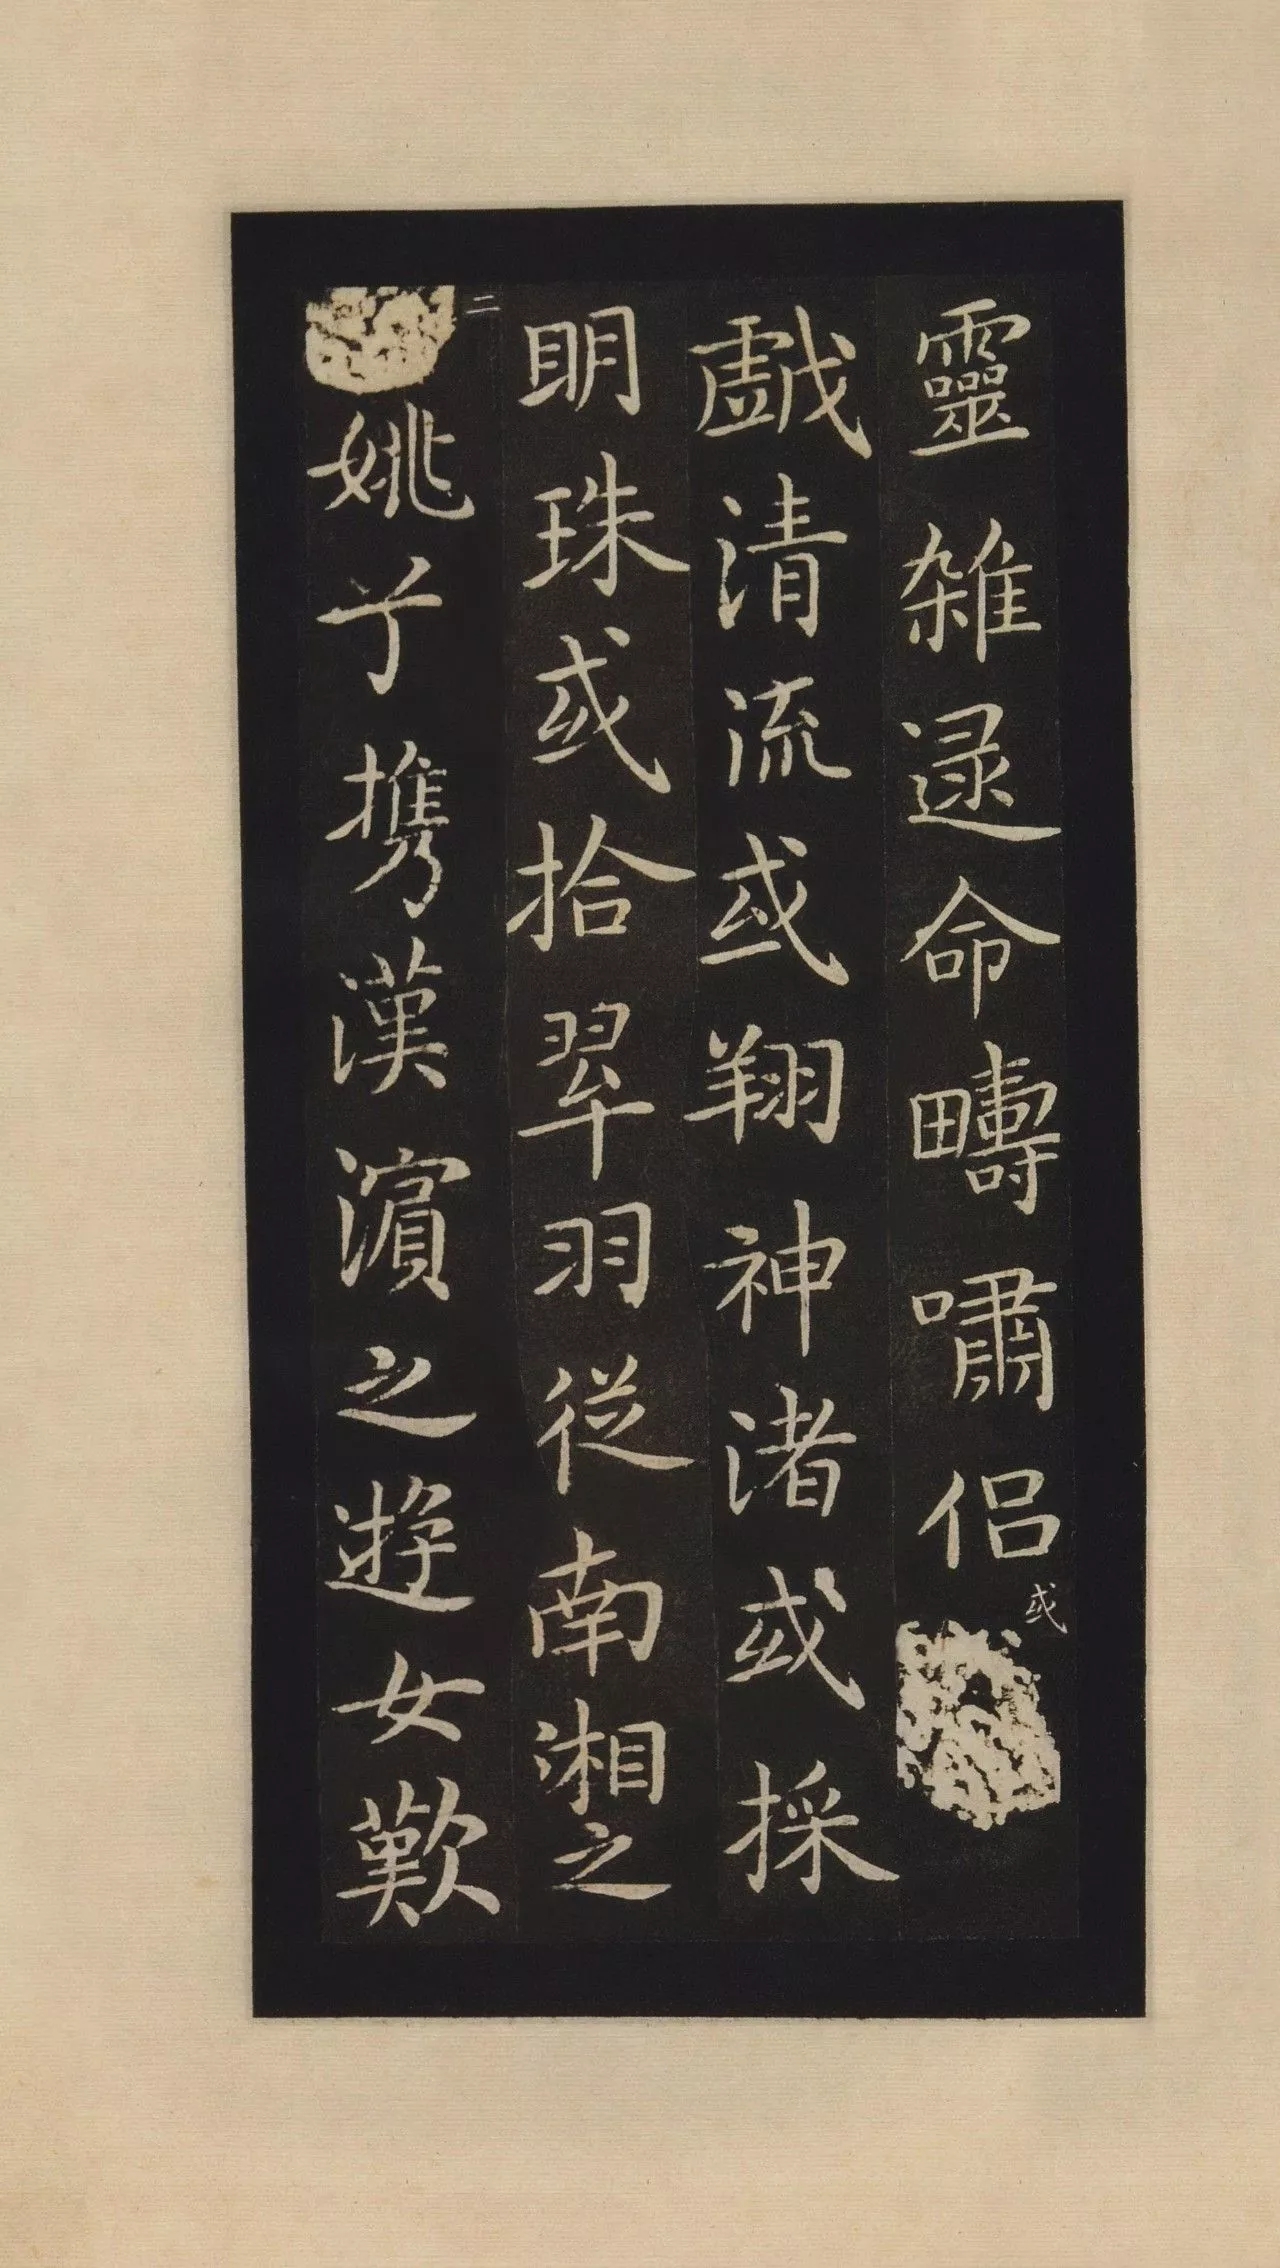 靈雜遝命疇嘯侶或
戯清流或翔神渚或採
明珠或拾翠羽從南湘之
二姚兮携漢濱之遊女歎